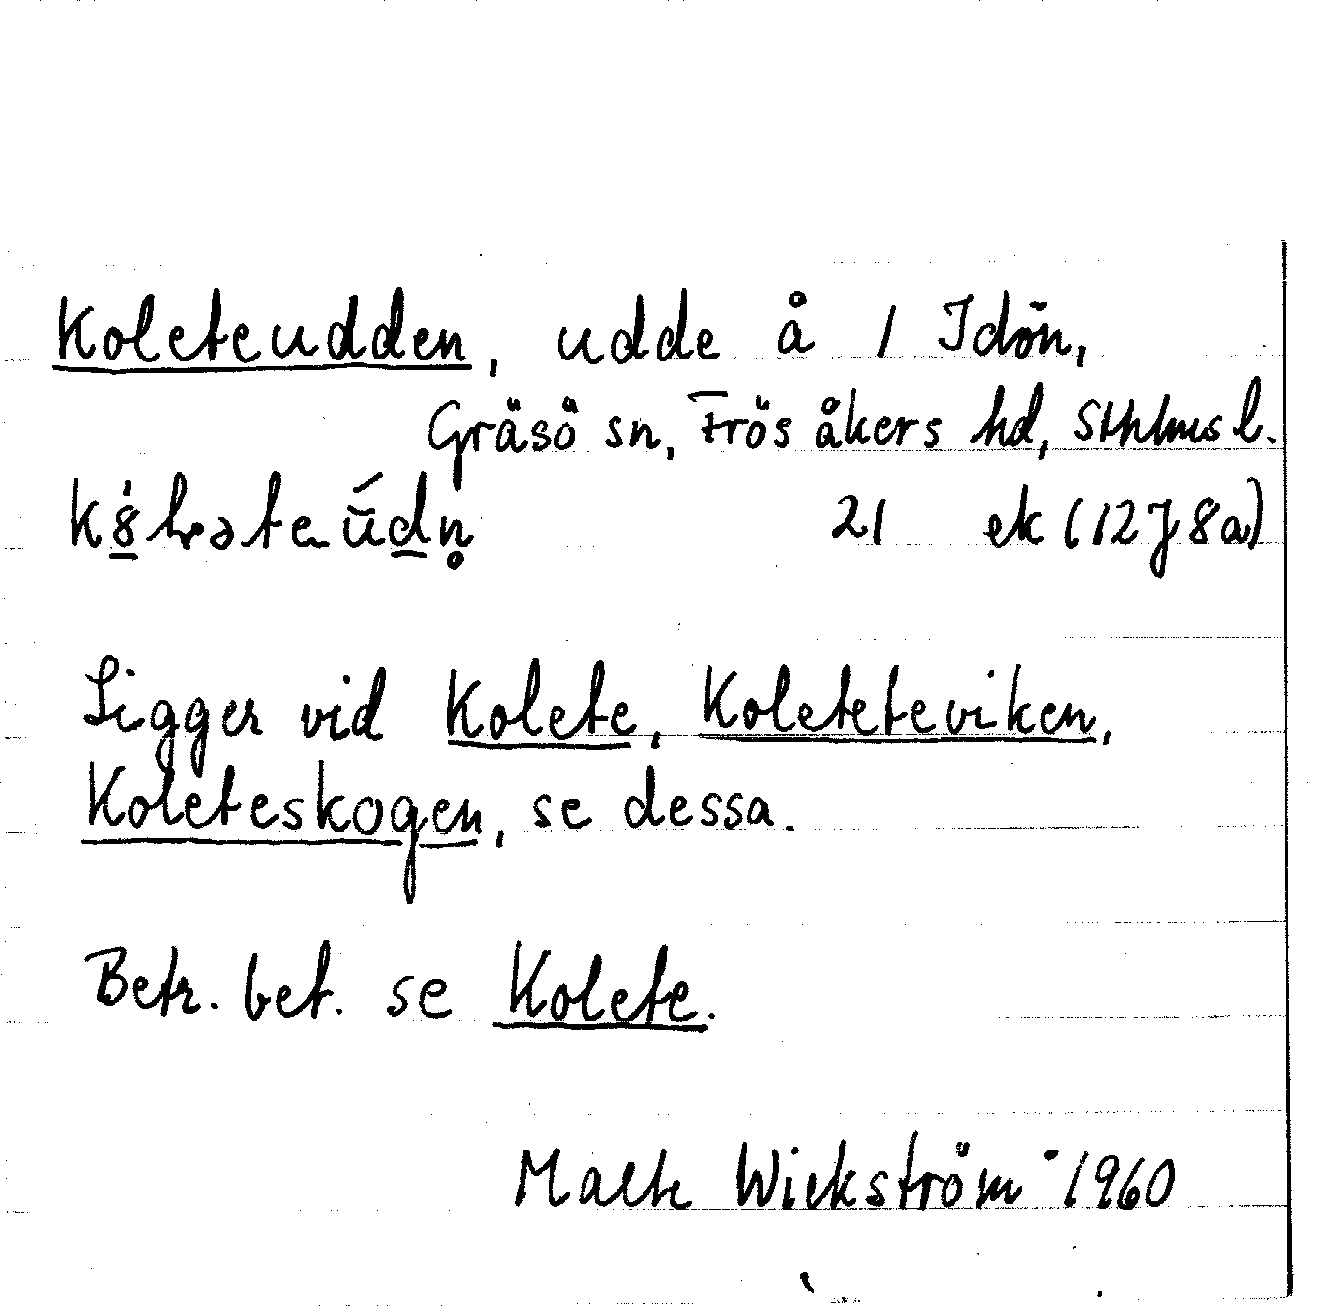 Koleteudden, udde å 1 Idön,
Gräsö sn, Frösåkers hd, Sthlms l.
21 ek (12J8a)
Ligger vid Kolete, Koleteteviken,
Koleteskogen, se dessa.
Betr. bet. se Kolete.
Malte Wickström 1960